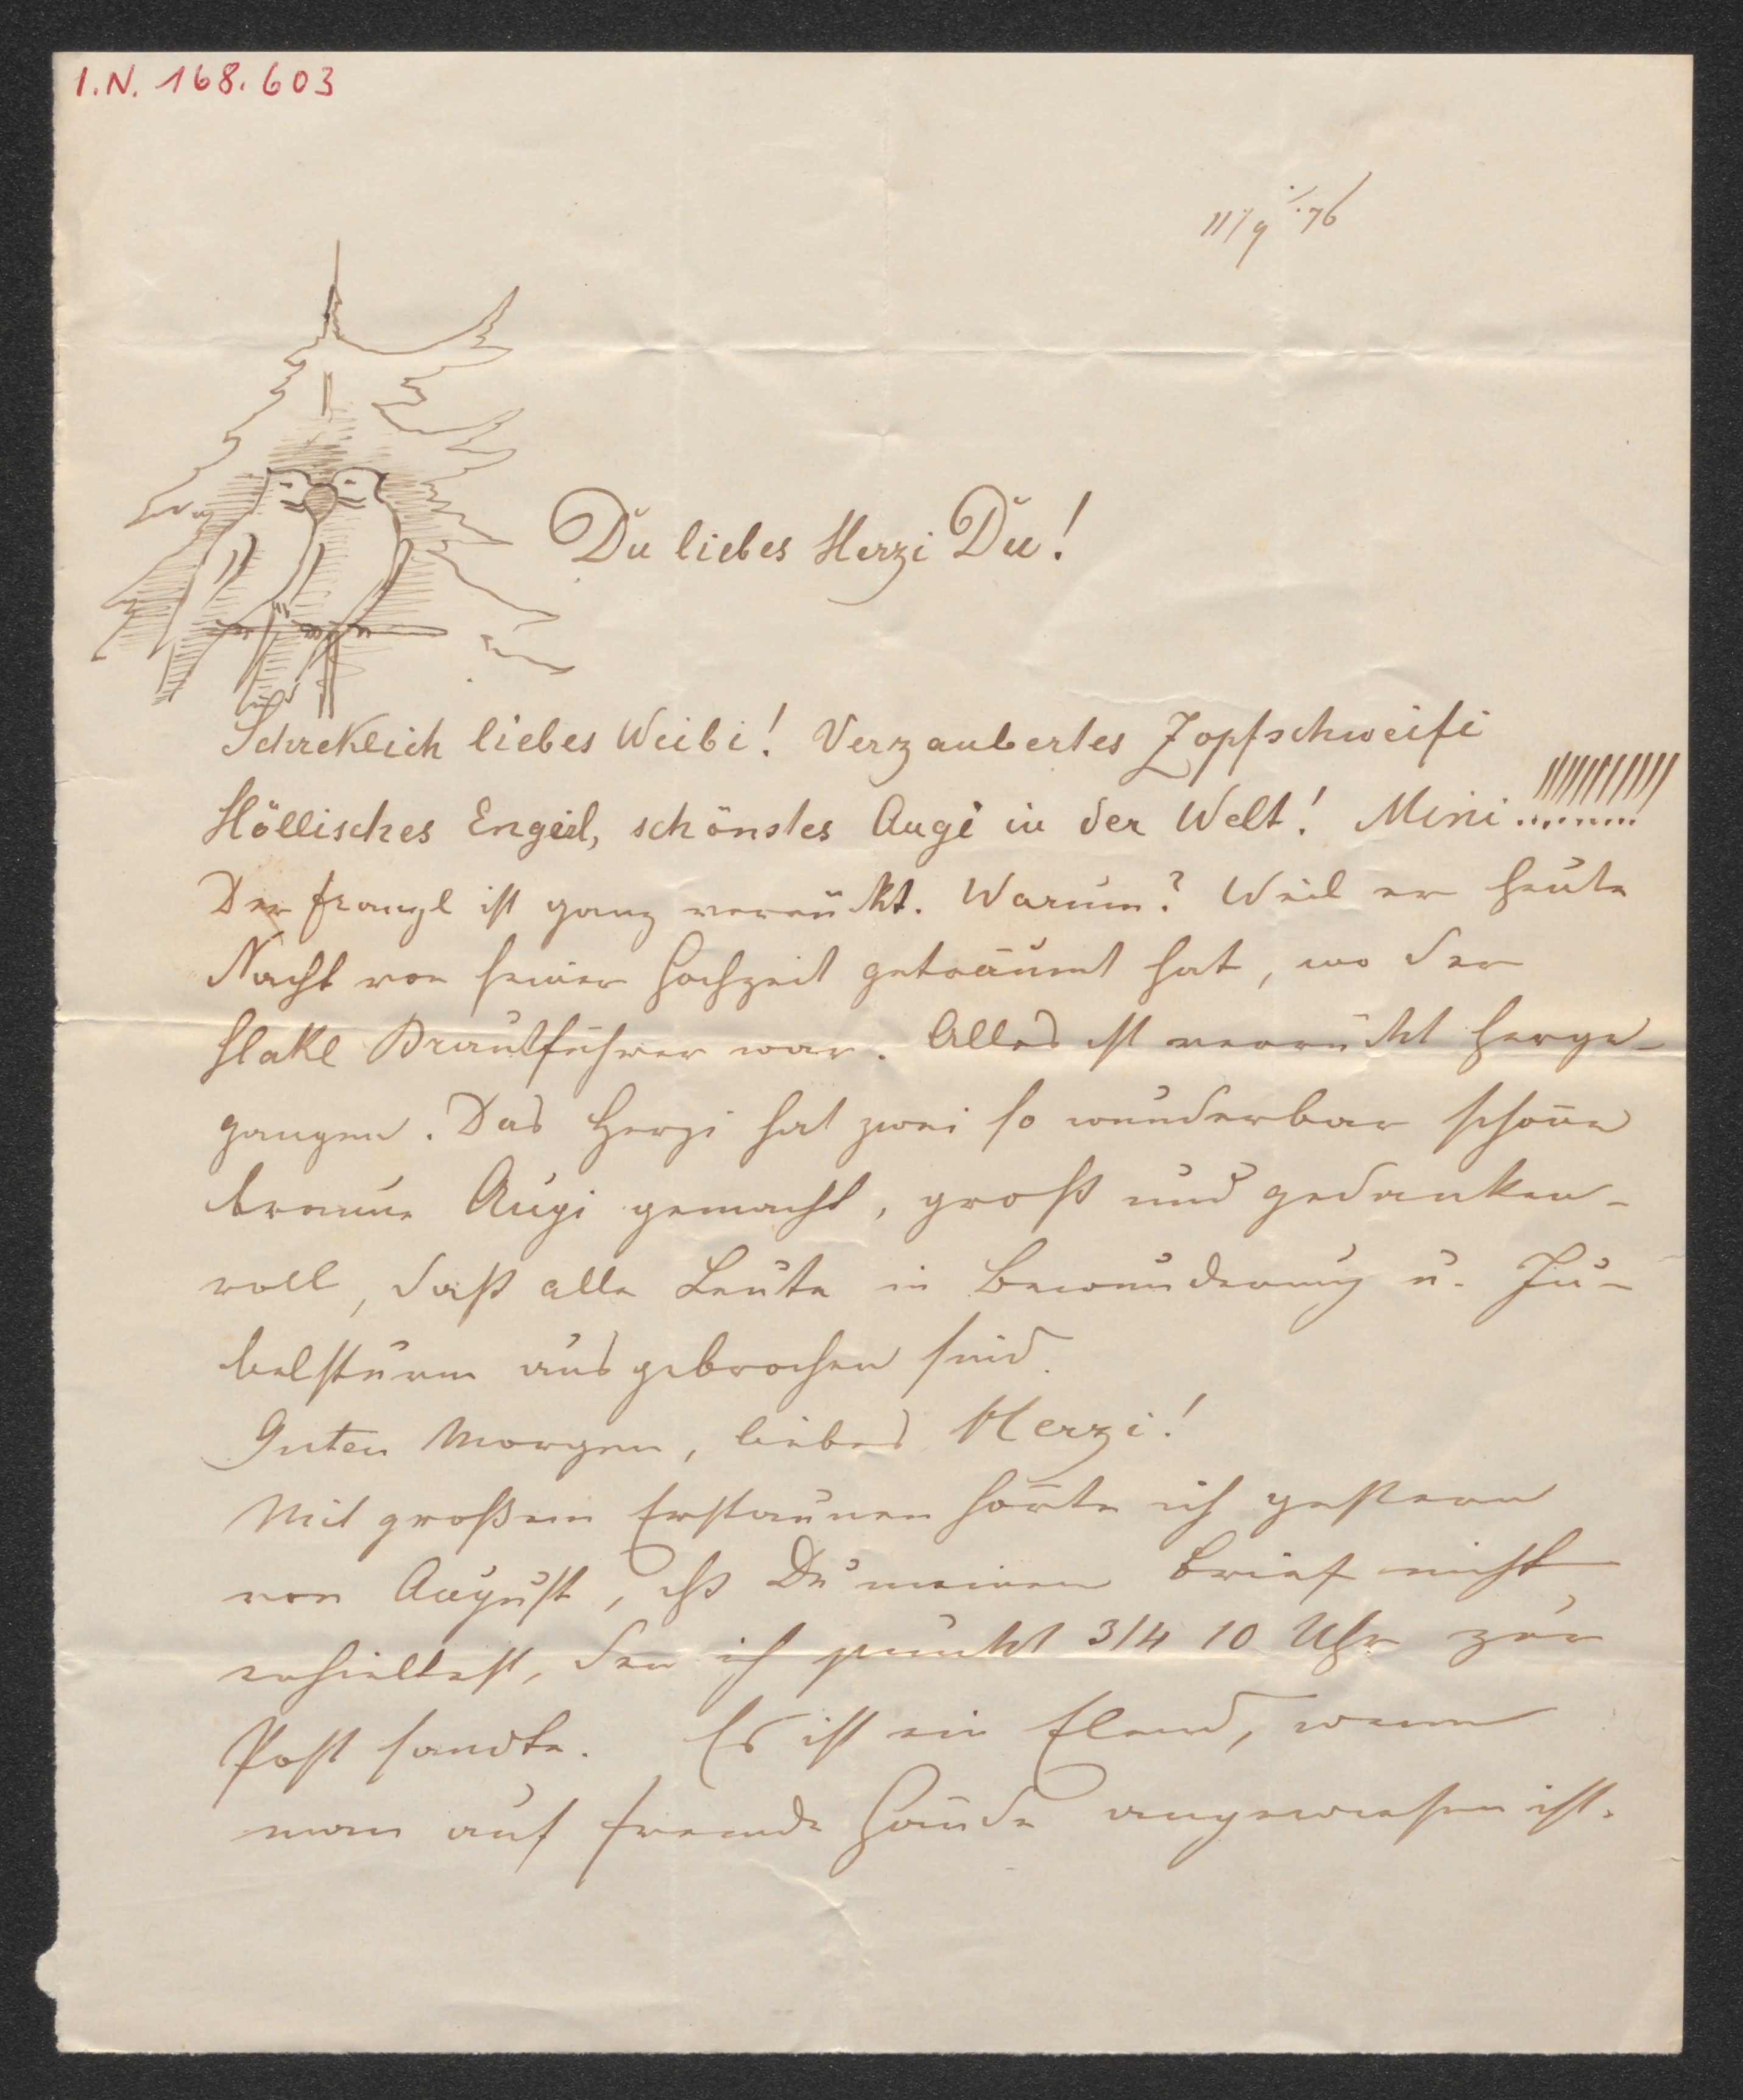 I.N. 168.603
11/9 76
Du liebes Herzi Du!
Schreklich liebes Weibi! Verzaubertes Zopfschweifi
Höllisches Engerl, schönstes Augi in der Welt! Mini !!!!!!!!!!
Der franzl ist ganz verrükt. Warum? Weil er heute
Nacht von seiner Hochzeit geträumt hat, wo der
Brautführer war. Alles ist verrükt herge-
gangen. Das Herzi hat zwei so wunderbar schöne
braune Augi gemacht, groß und gedanken-
voll, daß alle Leute in Bewunderung u. Ju-
belsturm ausgebrochen sind.
Guten Morgen, liebes Herzi!
Mit großem Erstaunen hörte ich gestern
von August, dß Du meinen Brief nicht
erhieltest, den ich punkt 3/4 10 Uhr zur
Post sandte. Es ist ein Elend, wenn
man auf fremde Hände angewiesen ist.